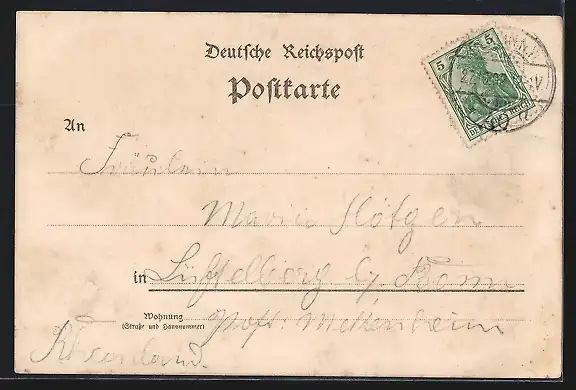 Deutsche Reichspost
Postkarte
5 5
DEUTSCHES REICH
An
Fräulein
Maria Hötgen
in Lüftelberg b/ Bonn
Wohnung
(Straße und Hausnummer)
Post: Meckenheim
Rheinland.